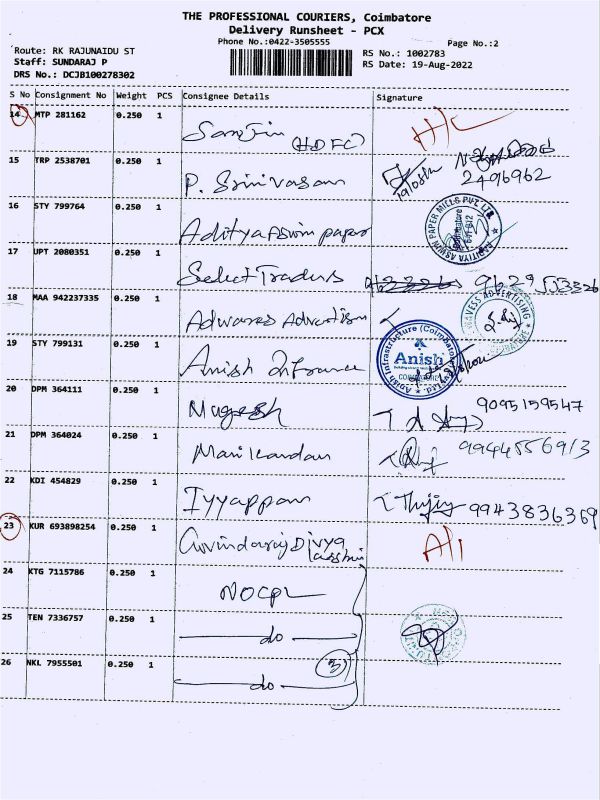 THE PROFESSIONAL COURIERS, Coimbatore
Delivery Runsheet - PCX
Phone No.:0422-3505555
Page No.:2
Route: RK RAJUNAIDU ST
RS No.: 1002783
Staff: SUNDARAJ P
RS Date: 19-Aug-2022
DRS No.: DCJB100278302
S No Consignment No Weight PCS Consignee Details Signature
14 MTP 281162 0.250 1 (HDFC)
15 TRP 2538701 0.250 1 P. Srinivasan 2496962
16 STY 799764 0.250 1 Aditya Aswin paper
17 UPT 2080351 0.250 1 Select Traders
18 MAA 942237335 0.250 1
19 STY 799131 0.250 1 Anish Anish
20 DPM 364111 0.250 1 Mugesh 9095159547
21 DPM 364024 0.250 1 Manikandan 9944556913
22 KDI 454829 0.250 1 Iyyappan 9943836369
23 KUR 693898254 0.250 1
24 KTG 7115786 0.250 1 NOCPL
25 TEN 7336757 0.250 1 do
26 NKL 7955501 0.250 1 do 3